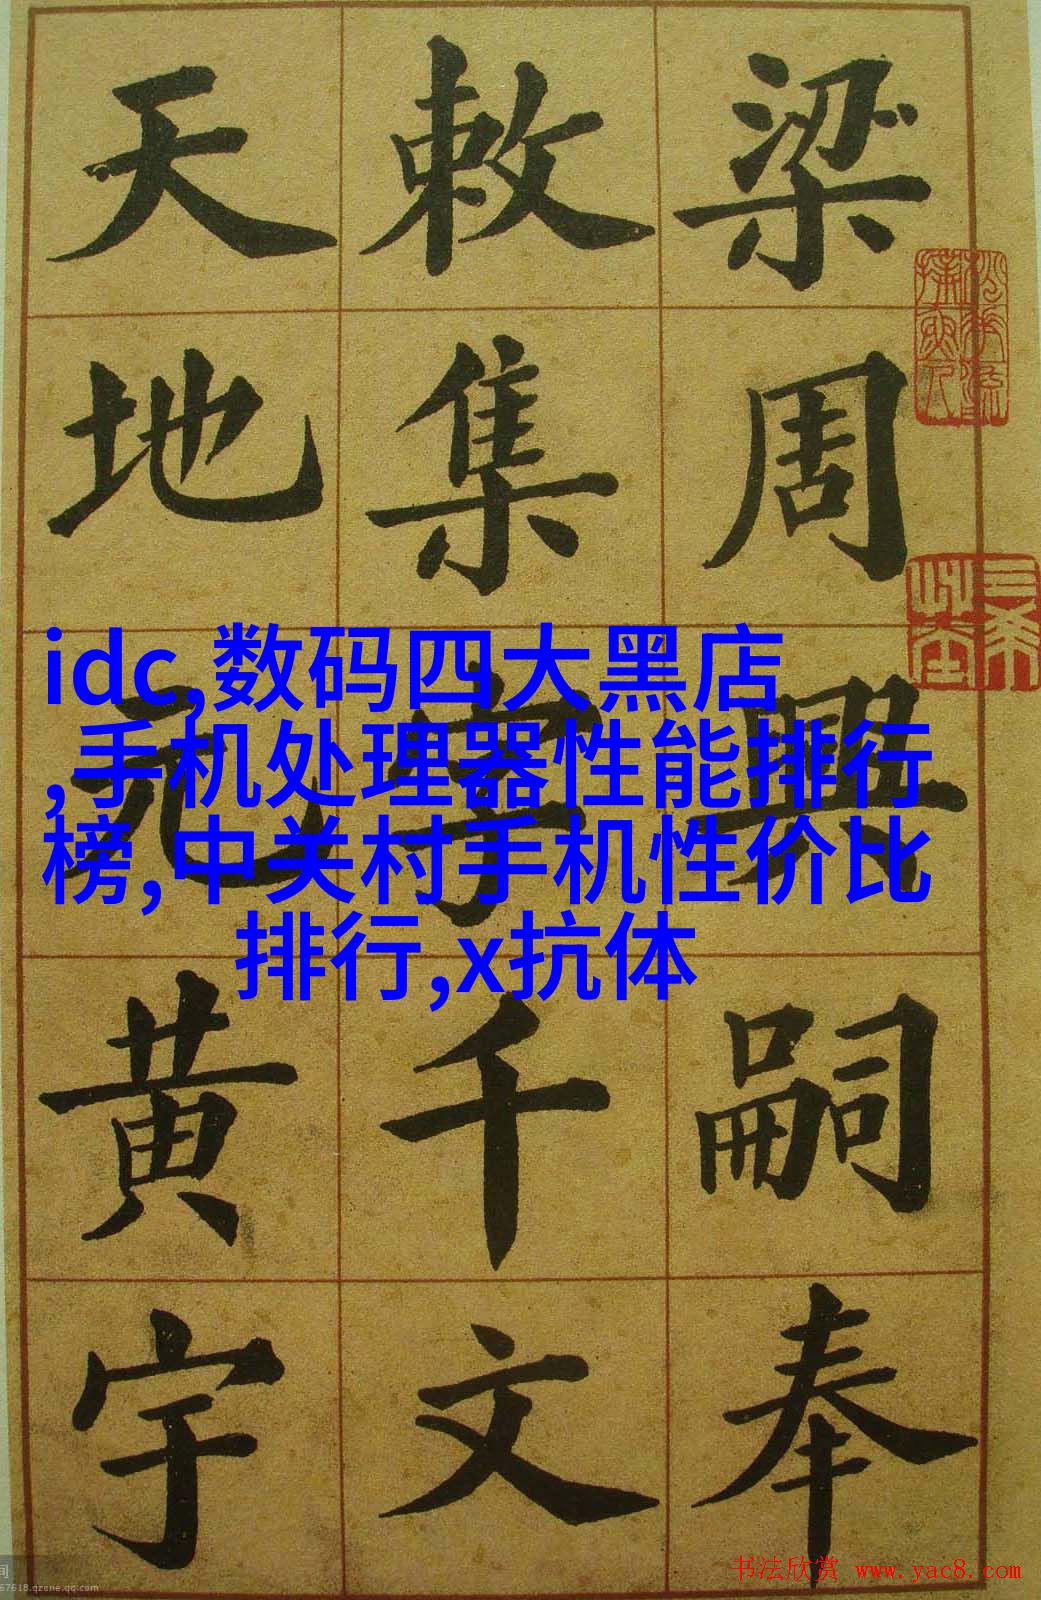 梁周興嗣奉
敕集字千文
天地元黄宇
idc,数码四大黑店
,手机处理器性能排行
榜,中关村手机性价比
排行,x抗体
书法欣赏 www.yac8.com
间
67618.qzone.qq.com